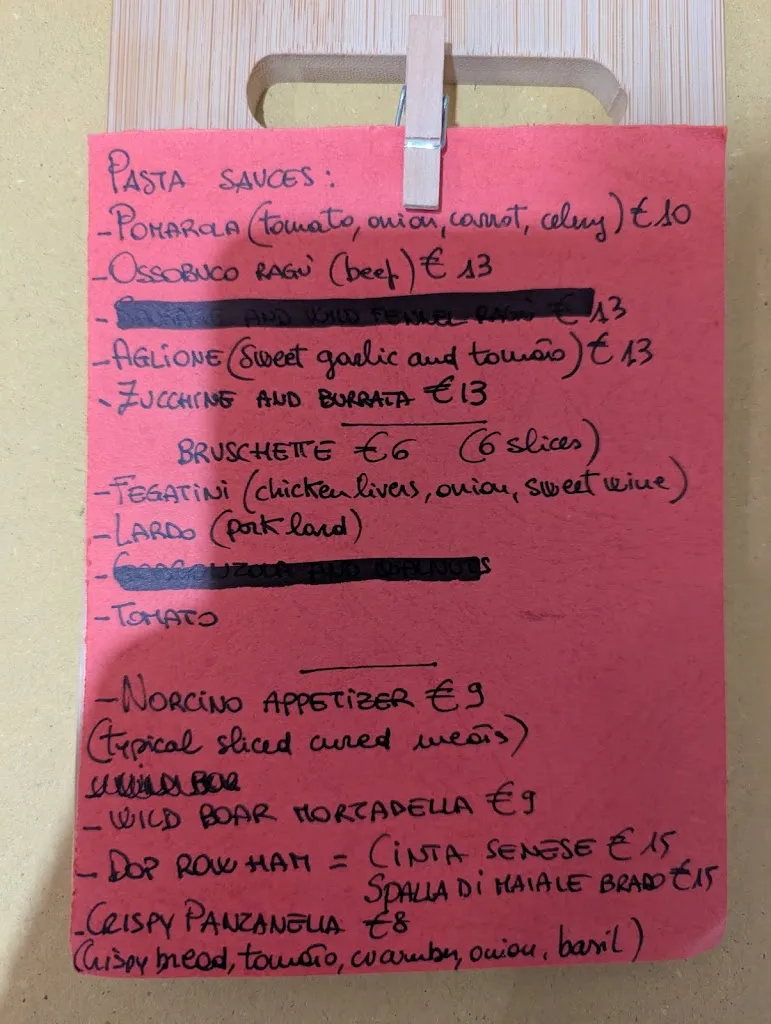 PASTA SAUCES:
- POMAROLA (tomato, onion, carrot, celery) €10
- OSSOBUCO RAGÙ (beef) € 13
- AND WILD FENNEL RAGÙ € 13
- AGLIONE (sweet garlic and tomato) € 13
- ZUCCHINE AND BURRATA €13
BRUSCHETTE €6 (6 slices)
- FEGATINI (chicken livers, onion, sweet wine)
- LARDO (pork lard)
- GORGONZOLA AND WALNUTS
- TOMATO
- NORCINO APPETIZER €9
(typical sliced cured meats)
WILD BOA
- WILD BOAR MORTADELLA €9
- DOP ROW HAM = CINTA SENESE € 15
SPALLA DI MAIALE BRADO €15
- CRISPY PANZANELLA €8
(crispy bread, tomato, cucumber, onion, basil)